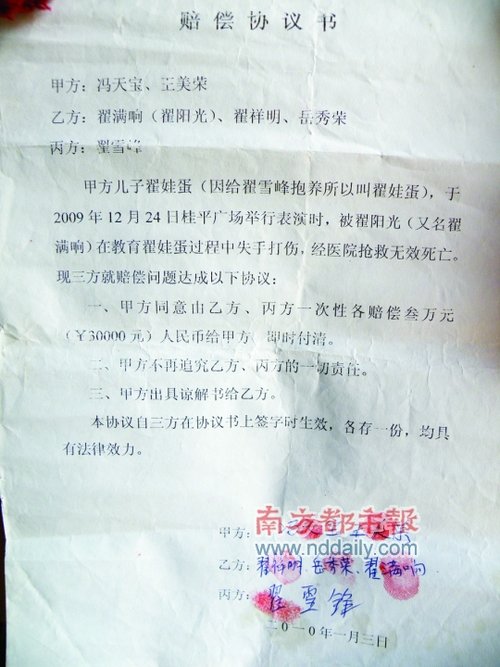 赔偿协议书
甲方：冯天宝、王美荣
乙方：翟满响（翟阳光）、翟祥明、岳秀荣
丙方：翟雪峰
甲方儿子翟娃蛋（因给翟雪峰抱养所以叫翟娃蛋），于
2009年12月24日桂平广场举行表演时，被翟阳光（又名翟
满响）在教育翟娃蛋过程中失手打伤，经医院抢救无效死亡。
现三方就赔偿问题达成以下协议：
一、甲方同意由乙方、丙方一次性各赔偿叁万元
（￥30000元）人民币给甲方，即时付清。
二、甲方不再追究乙方、丙方的一切责任。
三、甲方出具谅解书给乙方。
本协议自三方在协议书上签字时生效，各存一份，均具
有法律效力。
南方都市報
甲方：
www.nddaily.com
乙方：翟祥明、岳秀荣、翟满响
丙方：翟雪锋
二〇一〇年一月三日